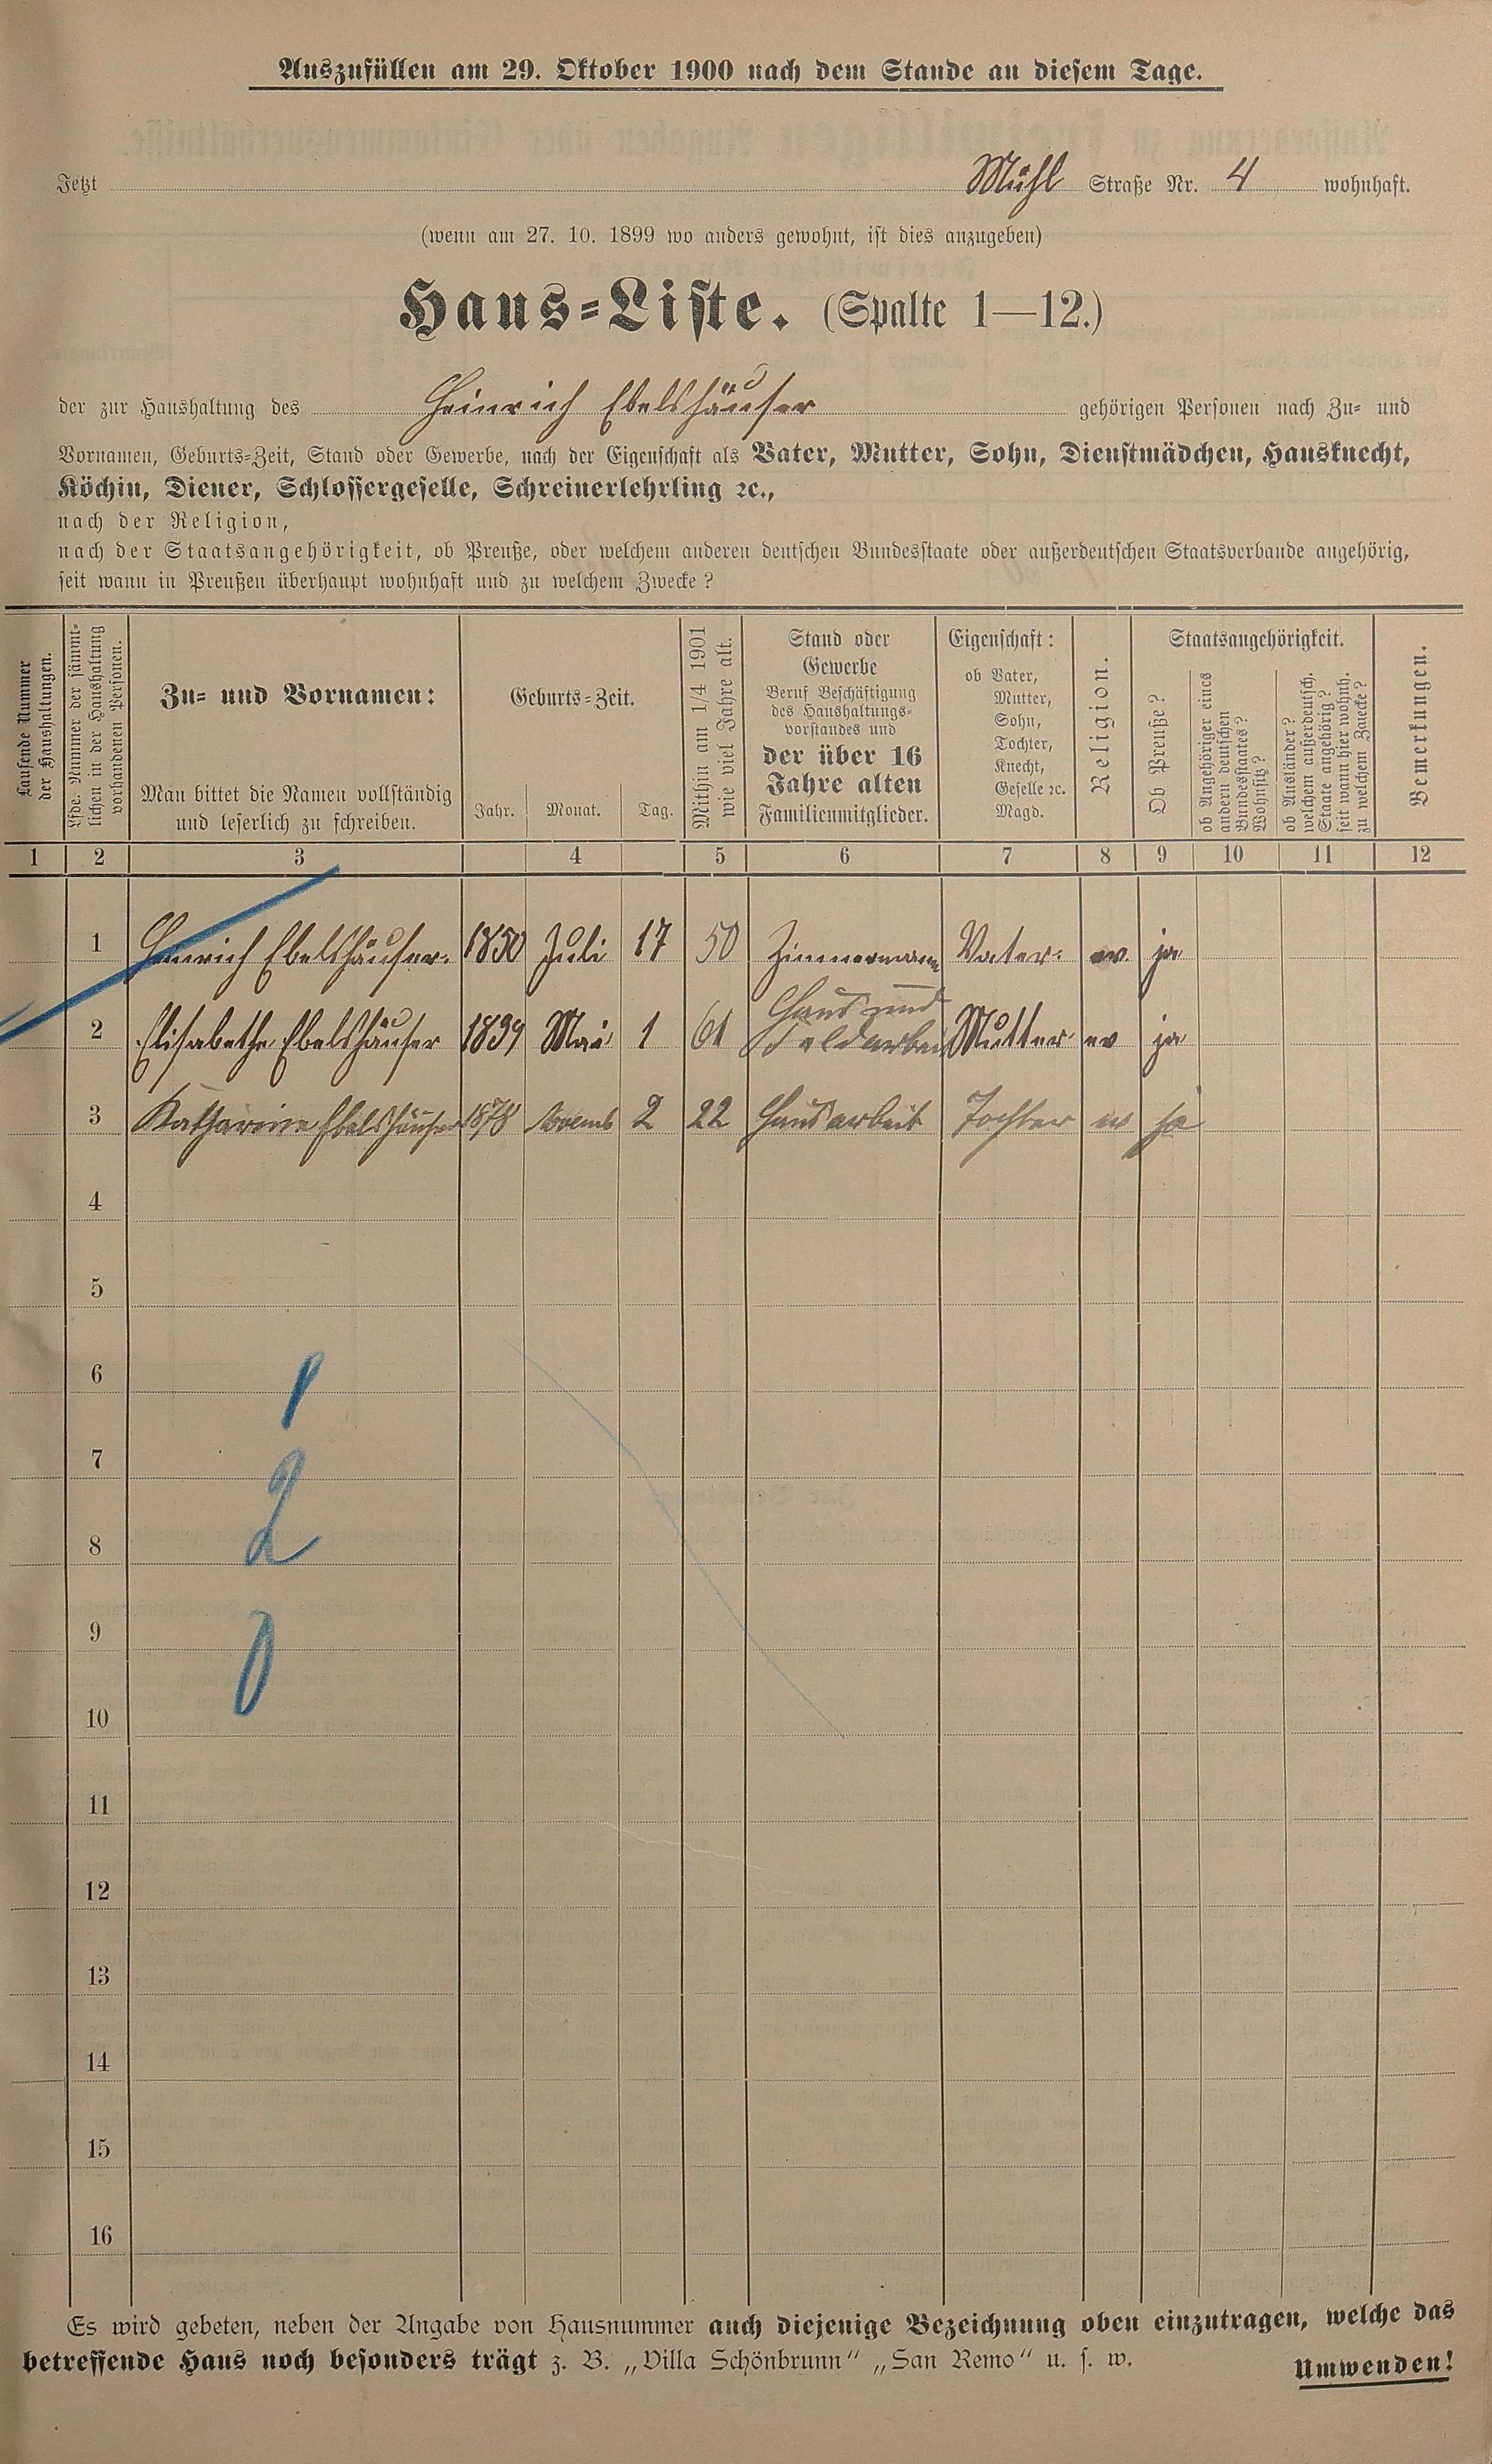 Auszufüllen am 29. Oktober 1900 nach dem Stande an diesem Tage.
Jetzt Mühl Straße Nr. 4 wohnhaft.
(wenn am 27. 10. 1899 wo anders gewohnt, ist dies anzugeben)
Haus-Liste. (Spalte 1—12.)
der zur Haushaltung des Heinrich Ebelshäuser gehörigen Personen nach Zu- und
Vornamen, Geburts-Zeit, Stand oder Gewerbe, nach der Eigenschaft als Vater, Mutter, Sohn, Dienstmädchen, Hausknecht,
Köchin, Diener, Schlossergeselle, Schreinerlehrling ꝛc.,
nach der Religion,
nach der Staatsangehörigkeit, ob Preuße, oder welchem anderen deutschen Bundesstaate oder außerdeutschen Staatsverbande angehörig,
seit wann in Preußen überhaupt wohnhaft und zu welchem Zwecke?
Laufende Nummer
der Haushaltungen.
Lfde. Nummer der sämmt-
lichen in der Haushaltung
vorhandenen Personen.
Zu- und Vornamen:
Man bittet die Namen vollständig
und leserlich zu schreiben.
Geburts-Zeit.
Jahr. Monat. Tag.
Mithin am 1/4 1901
wie viel Jahre alt.
Stand oder
Gewerbe
Beruf Beschäftigung
des Haushaltungs-
vorstandes und
der über 16
Jahre alten
Familienmitglieder.
Eigenschaft:
ob Vater,
Mutter,
Sohn,
Tochter,
Knecht,
Geselle ꝛc.
Magd.
Religion.
Staatsangehörigkeit.
Ob Preuße?
ob Angehöriger eines
andern deutschen
Bundesstaates?
Wohnsitz?
ob Ausländer?
welchem außerdeutsch.
Staate angehörig?
seit wann hier wohnh.
zu welchem Zwecke?
Bemerkungen.
1 2 3 4 5 6 7 8 9 10 11 12
1 Heinrich Ebelshäuser. 1850 Juli 17 50 Zimmermann Vater. ev. ja
2 Elisabethe Ebelshäuser 1839 Mai 1 61 Haus und Feldarbeit Mutter ev ja
3 Katharine Ebelshäuser 1878 Novemb 2 22 Hausarbeit Tochter ev ja
4
5
6
1
7
2
8
9
0
10
11
12
13
14
15
16
Es wird gebeten, neben der Angabe von Hausnummer auch diejenige Bezeichnung oben einzutragen, welche das
betreffende Haus noch besonders trägt z. B. „Villa Schönbrunn“ „San Remo“ u. s. w.
Umwenden!